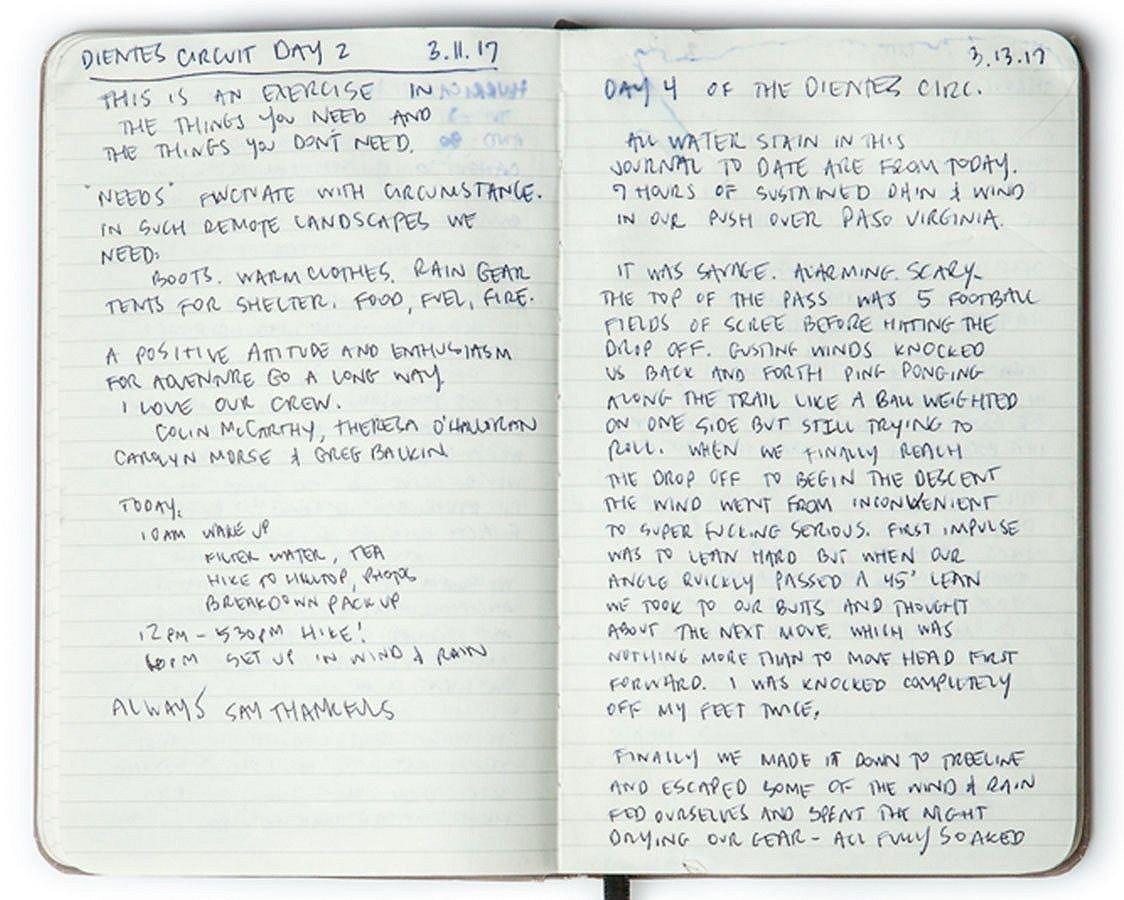 DIENTES CIRCUIT DAY 2 3.11.17
THIS IS AN EXERCISE IN
THE THINGS YOU NEED AND
THE THINGS YOU DON'T NEED.
"NEEDS" FLUCTUATE WITH CIRCUMSTANCE.
IN SUCH REMOTE LANDSCAPES WE
NEED:
BOOTS. WARM CLOTHES. RAIN GEAR
TENTS FOR SHELTER. FOOD, FUEL, FIRE.
A POSITIVE ATTITUDE AND ENTHUSIASM
FOR ADVENTURE GO A LONG WAY.
I LOVE OUR CREW.
COLIN McCARTHY, THERESA O'HALLORAN
CAROLYN MORSE & GREG BALKIN
TODAY.
10AM WAKE UP
FILTER WATER, TEA
HIKE TO HILLTOP, PHOTOS
BREAKDOWN PACK UP
12PM - 530PM HIKE!
6PM SET UP IN WIND & RAIN
ALWAYS SAY THANKFULS
3.13.17
DAY 4 OF THE DIENTES CIRC.
ALL WATER STAIN IN THIS
JOURNAL TO DATE ARE FROM TODAY.
7 HOURS OF SUSTAINED RAIN & WIND
IN OUR PUSH OVER PASO VIRGINIA.
IT WAS SAVAGE. ALARMING. SCARY.
THE TOP OF THE PASS WAS 5 FOOTBALL
FIELDS OF SCREE BEFORE HITTING THE
DROP OFF. GUSTING WINDS KNOCKED
US BACK AND FORTH PING PONGING
ALONG THE TRAIL LIKE A BALL WEIGHTED
ON ONE SIDE BUT STILL TRYING TO
ROLL. WHEN WE FINALLY REACH
THE DROP OFF TO BEGIN THE DESCENT
THE WIND WENT FROM INCONVENIENT
TO SUPER FUCKING SERIOUS. FIRST IMPULSE
WAS TO LEAN HARD BUT WHEN OUR
ANGLE QUICKLY PASSED A 45° LEAN
WE TOOK TO OUR BUTTS AND THOUGHT
ABOUT THE NEXT MOVE. WHICH WAS
NOTHING MORE THAN TO MOVE HEAD FIRST
FORWARD. I WAS KNOCKED COMPLETELY
OFF MY FEET TWICE.
FINALLY WE MADE IT DOWN TO TREELINE
AND ESCAPED SOME OF THE WIND & RAIN
FED OURSELVES AND SPENT THE NIGHT
DRYING OUR GEAR - ALL FULLY SOAKED